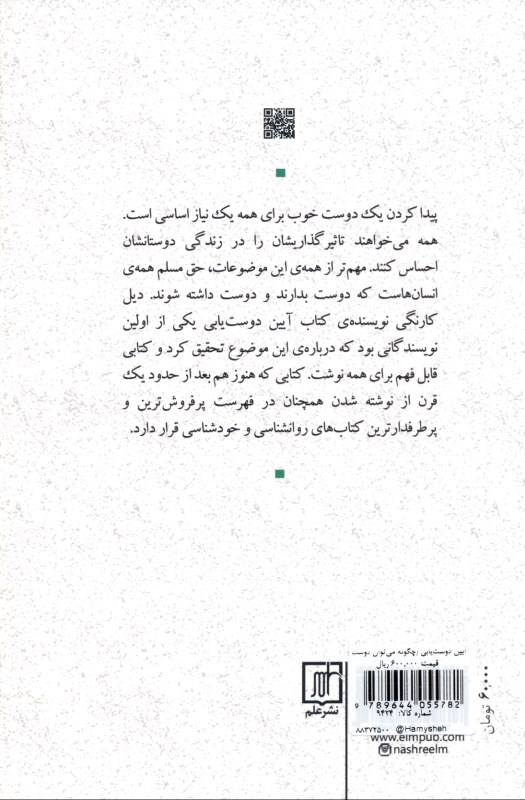 پیدا کردن یک دوست خوب برای همه یک نیاز اساسی است.
همه می‌خواهند تاثیرگذاریشان را در زندگی دوستانشان
احساس کنند. مهم‌تر از همه‌ی این موضوعات، حق مسلم همه‌ی
انسان‌هاست که دوست بدارند و دوست داشته شوند. دیل
کارنگی نویسنده‌ی کتاب آیین دوست‌یابی یکی از اولین
نویسندگانی بود که درباره‌ی این موضوع تحقیق کرد و کتابی
قابل فهم برای همه نوشت. کتابی که هنوز هم بعد از حدود یک
قرن از نوشته شدن همچنان در فهرست پرفروش‌ترین و
پرطرفدارترین کتاب‌های روانشناسی و خودشناسی قرار دارد.
آیین دوست‌یابی (چگونه می‌توان دوست
قیمت ۶۰۰,۰۰۰ ریال
9 789644 055782
شماره کالا: ۹۴۲۴
۸۸۳۷۲۵۰۰ @Hamysheh
www.elmpub.com
nashreelm
نشر علم
۶۰,۰۰۰ تومان